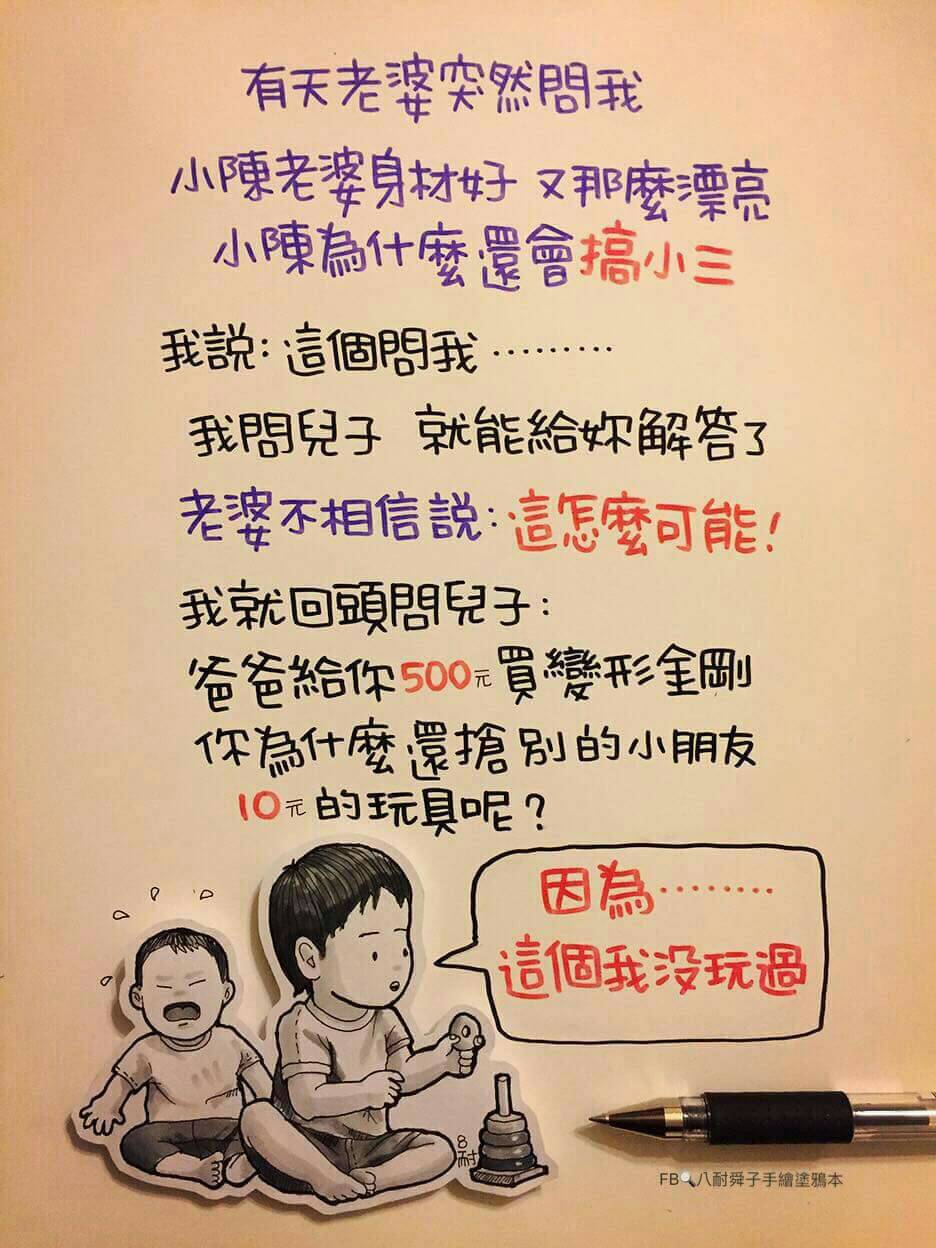 有天老婆突然問我
小陳老婆身材好 又那麼漂亮
小陳為什麼還會搞小三
我說：這個問我………
我問兒子 就能給妳解答了
老婆不相信說：這怎麼可能！
我就回頭問兒子：
爸爸給你500元買變形金剛
你為什麼還搶別的小朋友
10元的玩具呢？
因為………
這個我沒玩過
8耐
FB🔍八耐舜子手繪塗鴉本